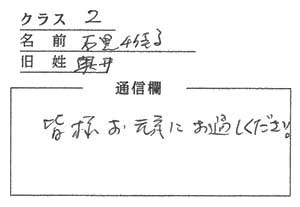 クラス 2
名前 石黒
旧姓
通信欄
皆様お元気にお過しください。